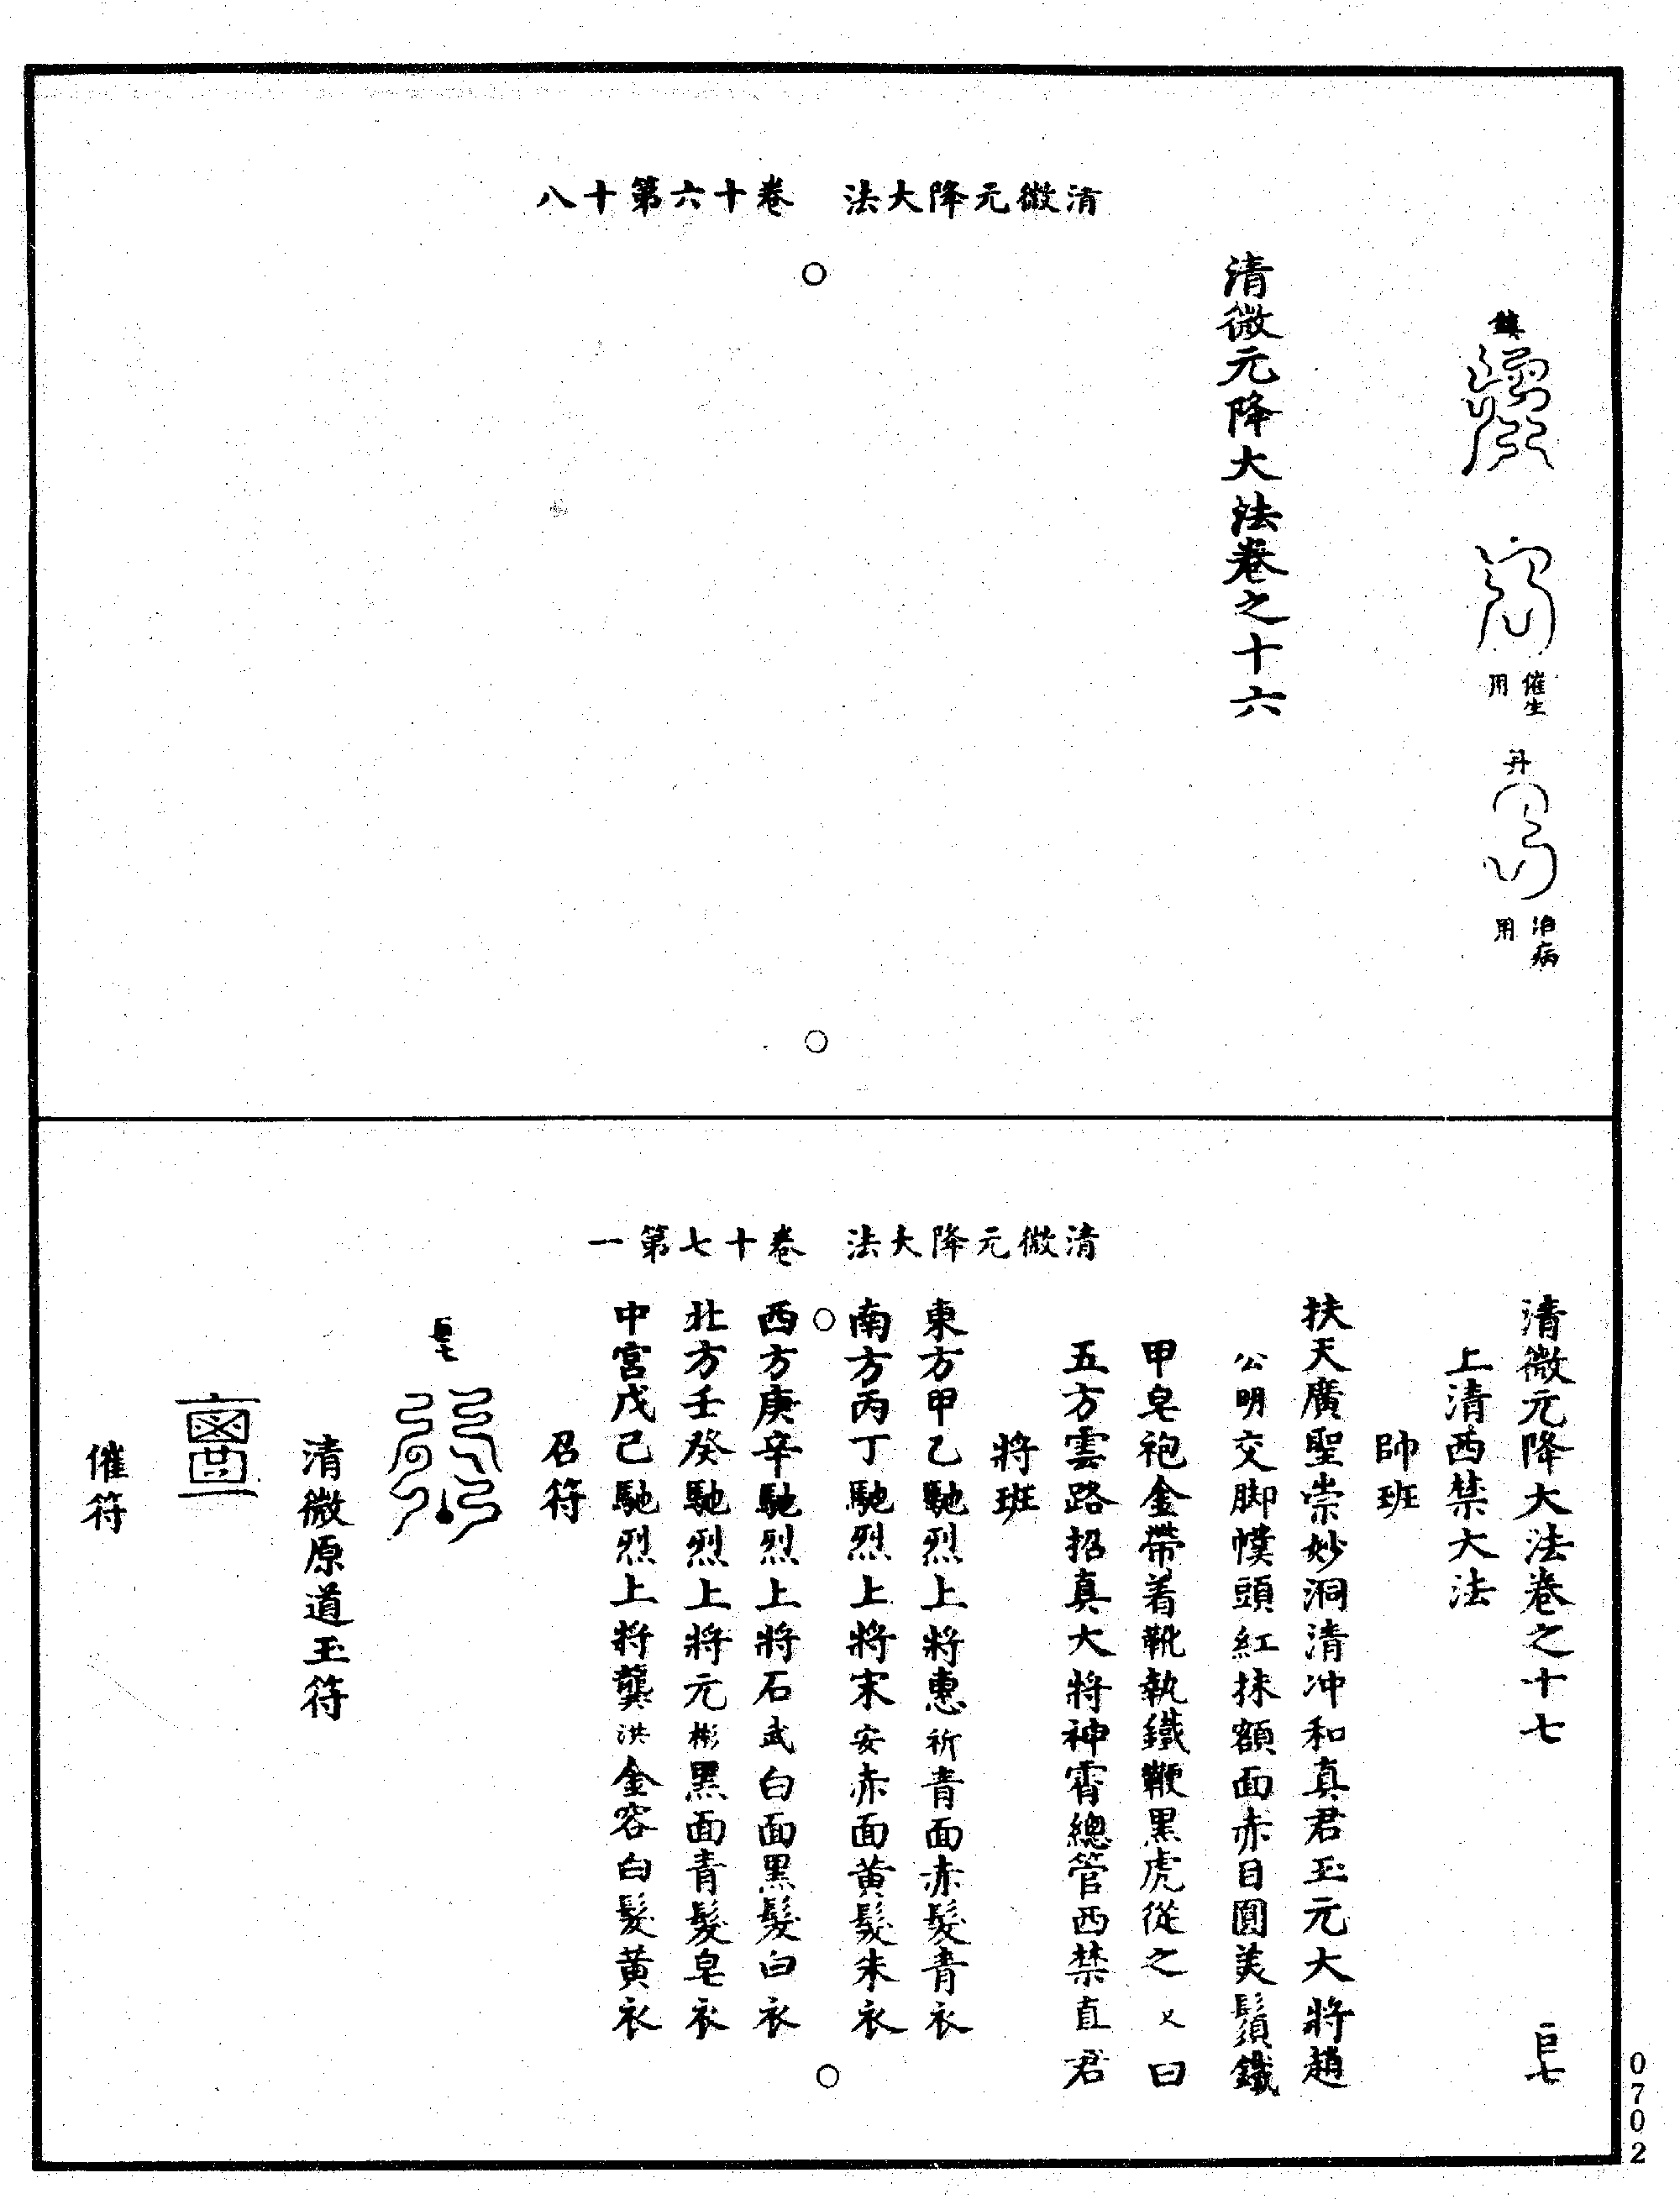 清微元降大法　卷十六第十八
鎮
催生
用
丹
治病
用
清微元降大法卷之十六
清微元降大法　卷十七第一
清微元降大法卷之十七　巨七
上清西禁大法
帥班
扶天廣聖崇妙洞清冲和真君玉元大將趙
公明交脚幞頭紅抹額面赤目圓美鬚鐵
甲皂袍金帶着靴執鐵鞭黑虎從之又曰
五方雲路招真大將神霄總管西禁直君
將班
東方甲乙馳烈上將惠祈青面赤髮青衣
南方丙丁馳烈上將宋安赤面黄髮朱衣
西方庚辛馳烈上將石武白面黑髮白衣
北方壬癸馳烈上將元彬黑面青髮皂衣
中宫戊己馳烈上將龔洪金容白髮黄衣
召符
清微原道玉符
催符
0702